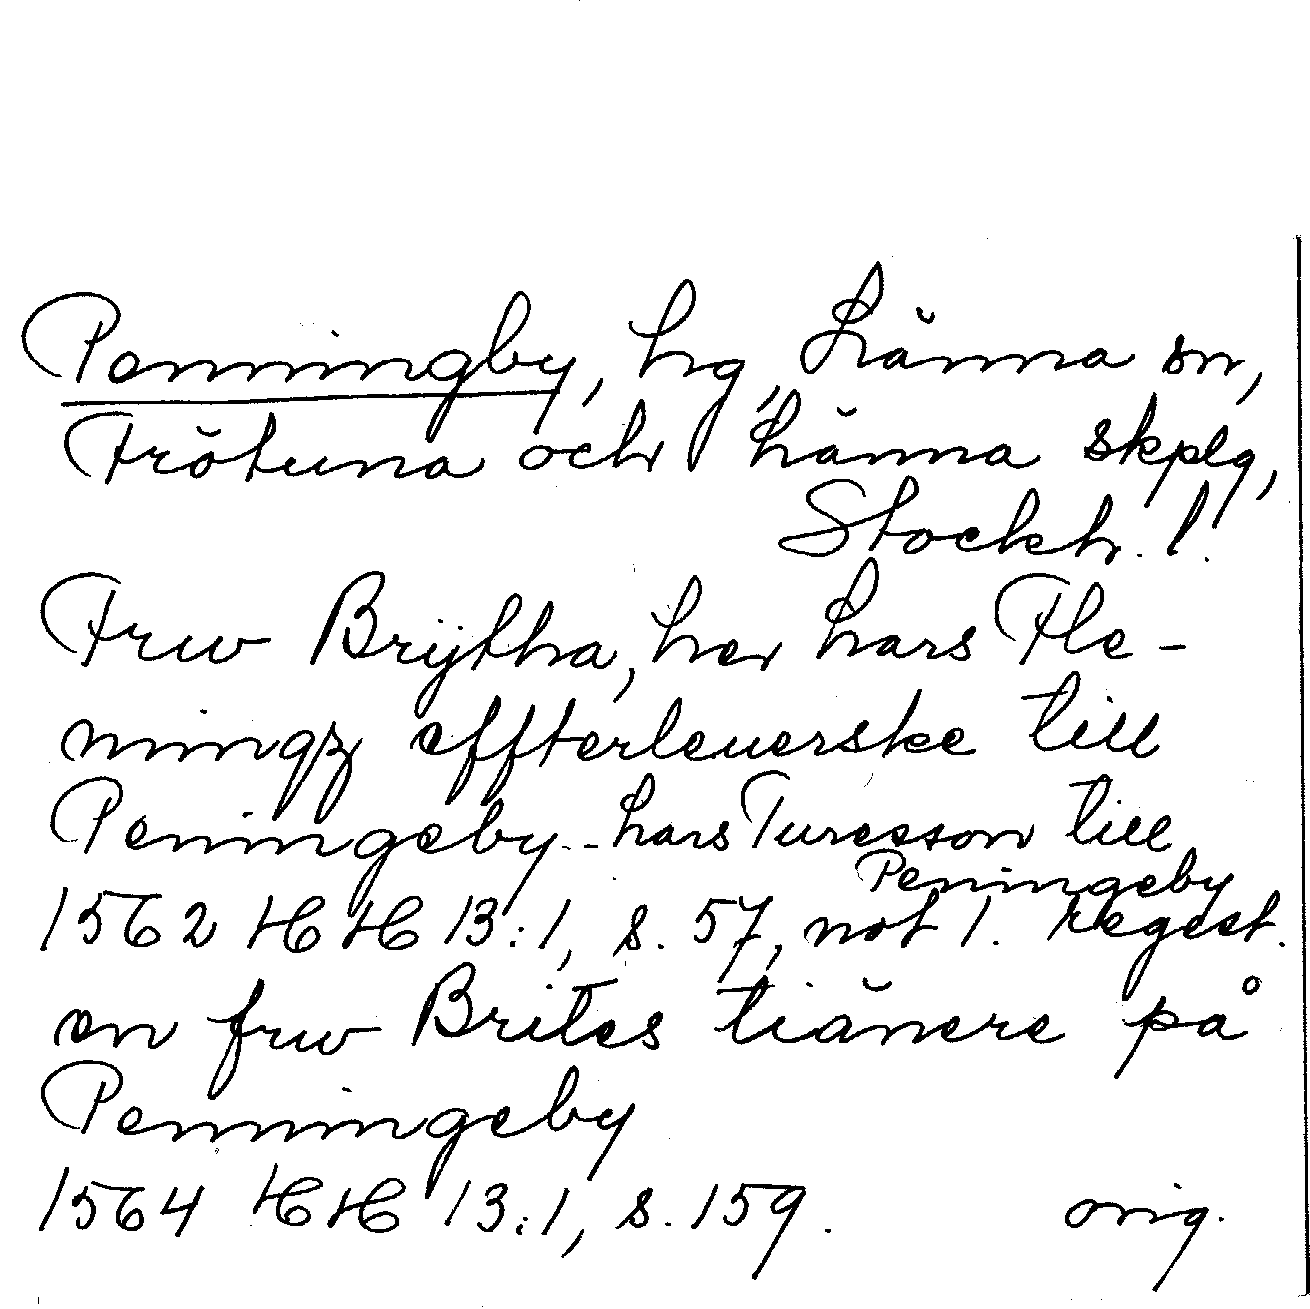 Penningby, hg, Länna sn,
Frötuna och Länna skplg,
Stockh. l.
Frw Brÿtha, her Lars Fle-
mingz effterleuerske till
Peningeby -- Lars Turesson till
Peningeby
1562 HH 13:1, s. 57, not 1. Regest.
en frw Brites tiänere på
Penningeby
1564 HH 13:1, s. 159. orig.